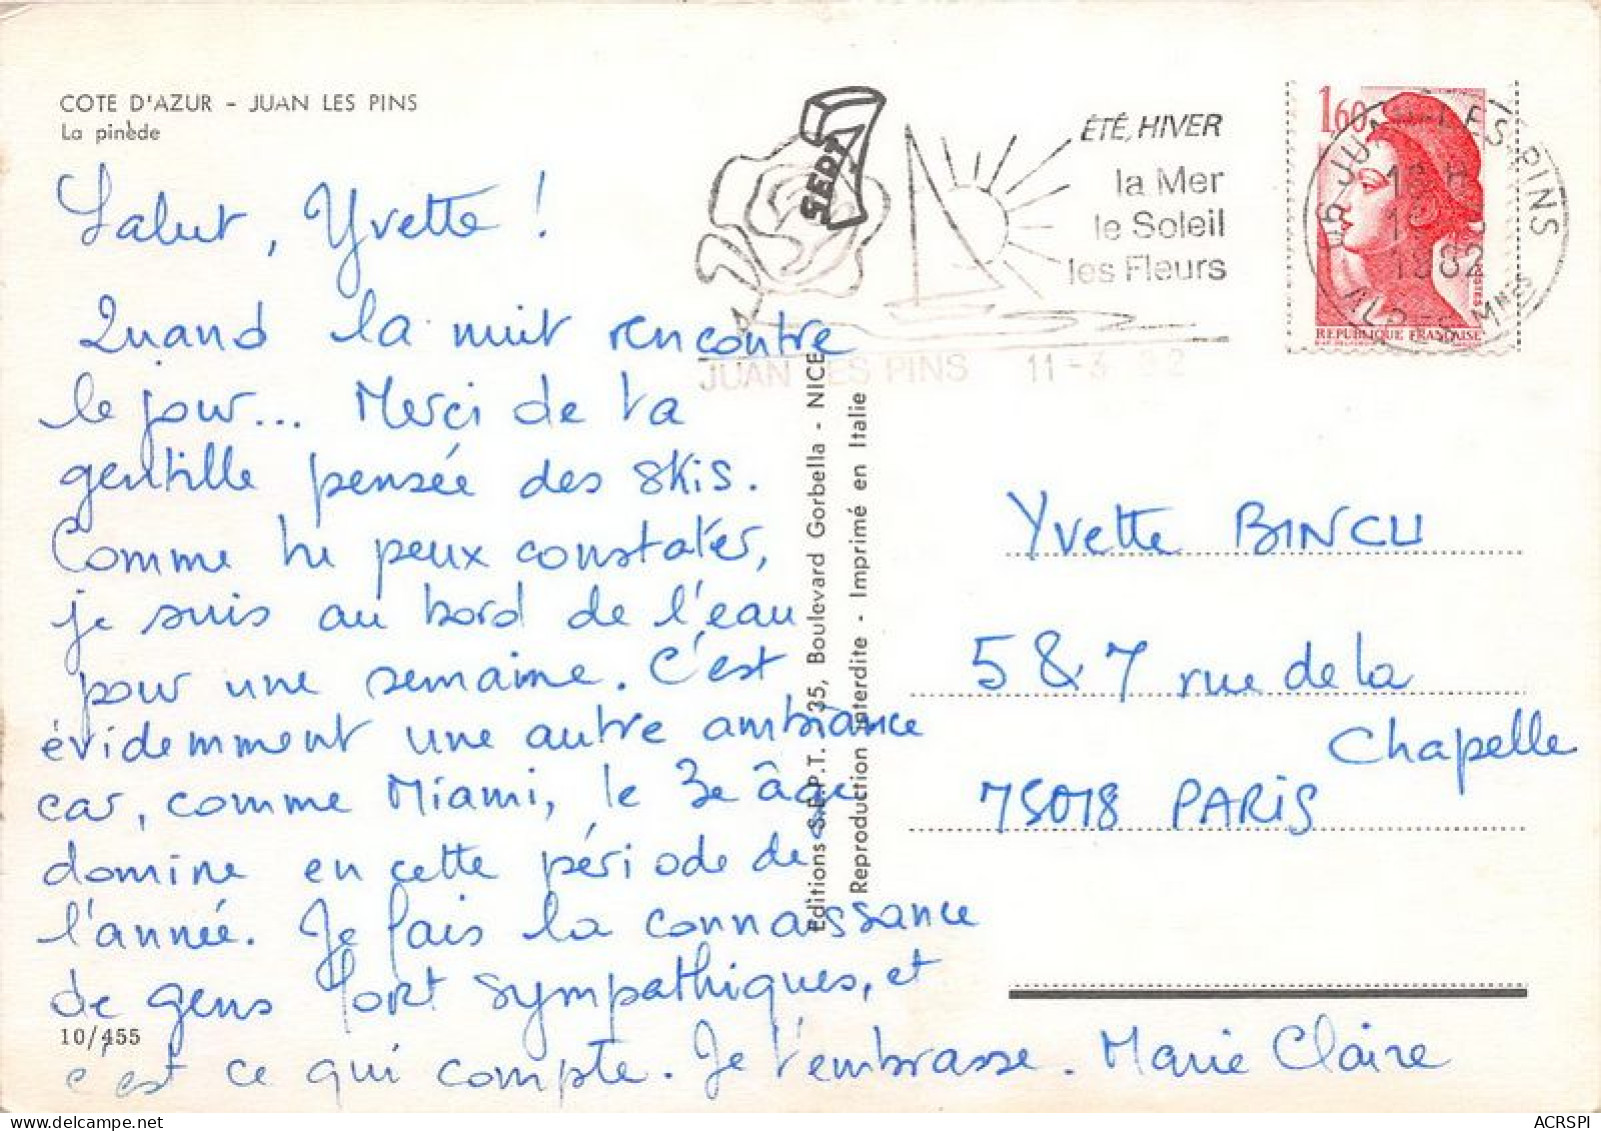 COTE D'AZUR - JUAN LES PINS
La pinède
Salut, Yvette !
Quand la nuit rencontre
le jour... Merci de ta
gentille pensée des skis.
Comme tu peux constater,
je suis au bord de l'eau
pour une semaine. C'est
évidemment une autre ambiance
car, comme Miami, le 3e âge
domine en cette période de
l'année. Je fais la connaissance
de gens fort sympathiques, et
c'est ce qui compte. Je t'embrasse. Marie Claire
10/455
SEPT
ÉTÉ, HIVER
la Mer
le Soleil
les Fleurs
JUAN LES PINS 11-3
1,60
RÉPUBLIQUE FRANÇAISE
06 JUAN-LES-PINS
1982
ALP.-MMES
Editions S.E.P.T. 35, Boulevard Gorbella - NICE
Reproduction interdite - Imprimé en Italie
Yvette BINCU
5 & 7 rue de la
Chapelle
75018 PARIS
ACRSPI